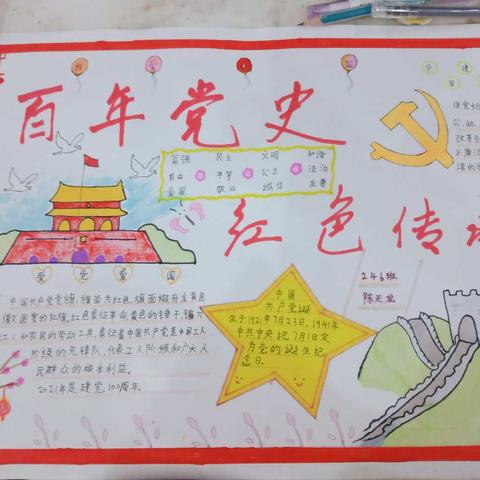 百年党史
红色传
富强 民主 文明 和谐
自由 平等 公正 法治
爱国 敬业 诚信 友善
爱党爱国
中国共产党党旗,旗面为红色,旗面缀有金黄色
工人和农民的劳动工具,象征着中国共产党是中国工人
阶级的先锋队,代表工人阶级和广大人
民群众的根本利益。
2021年是建党100周年。
中国
共产党诞
生于1921年7月23日,1941年
中共中央把7月1日定
为党的诞生纪
念日。
246班
陈天龙